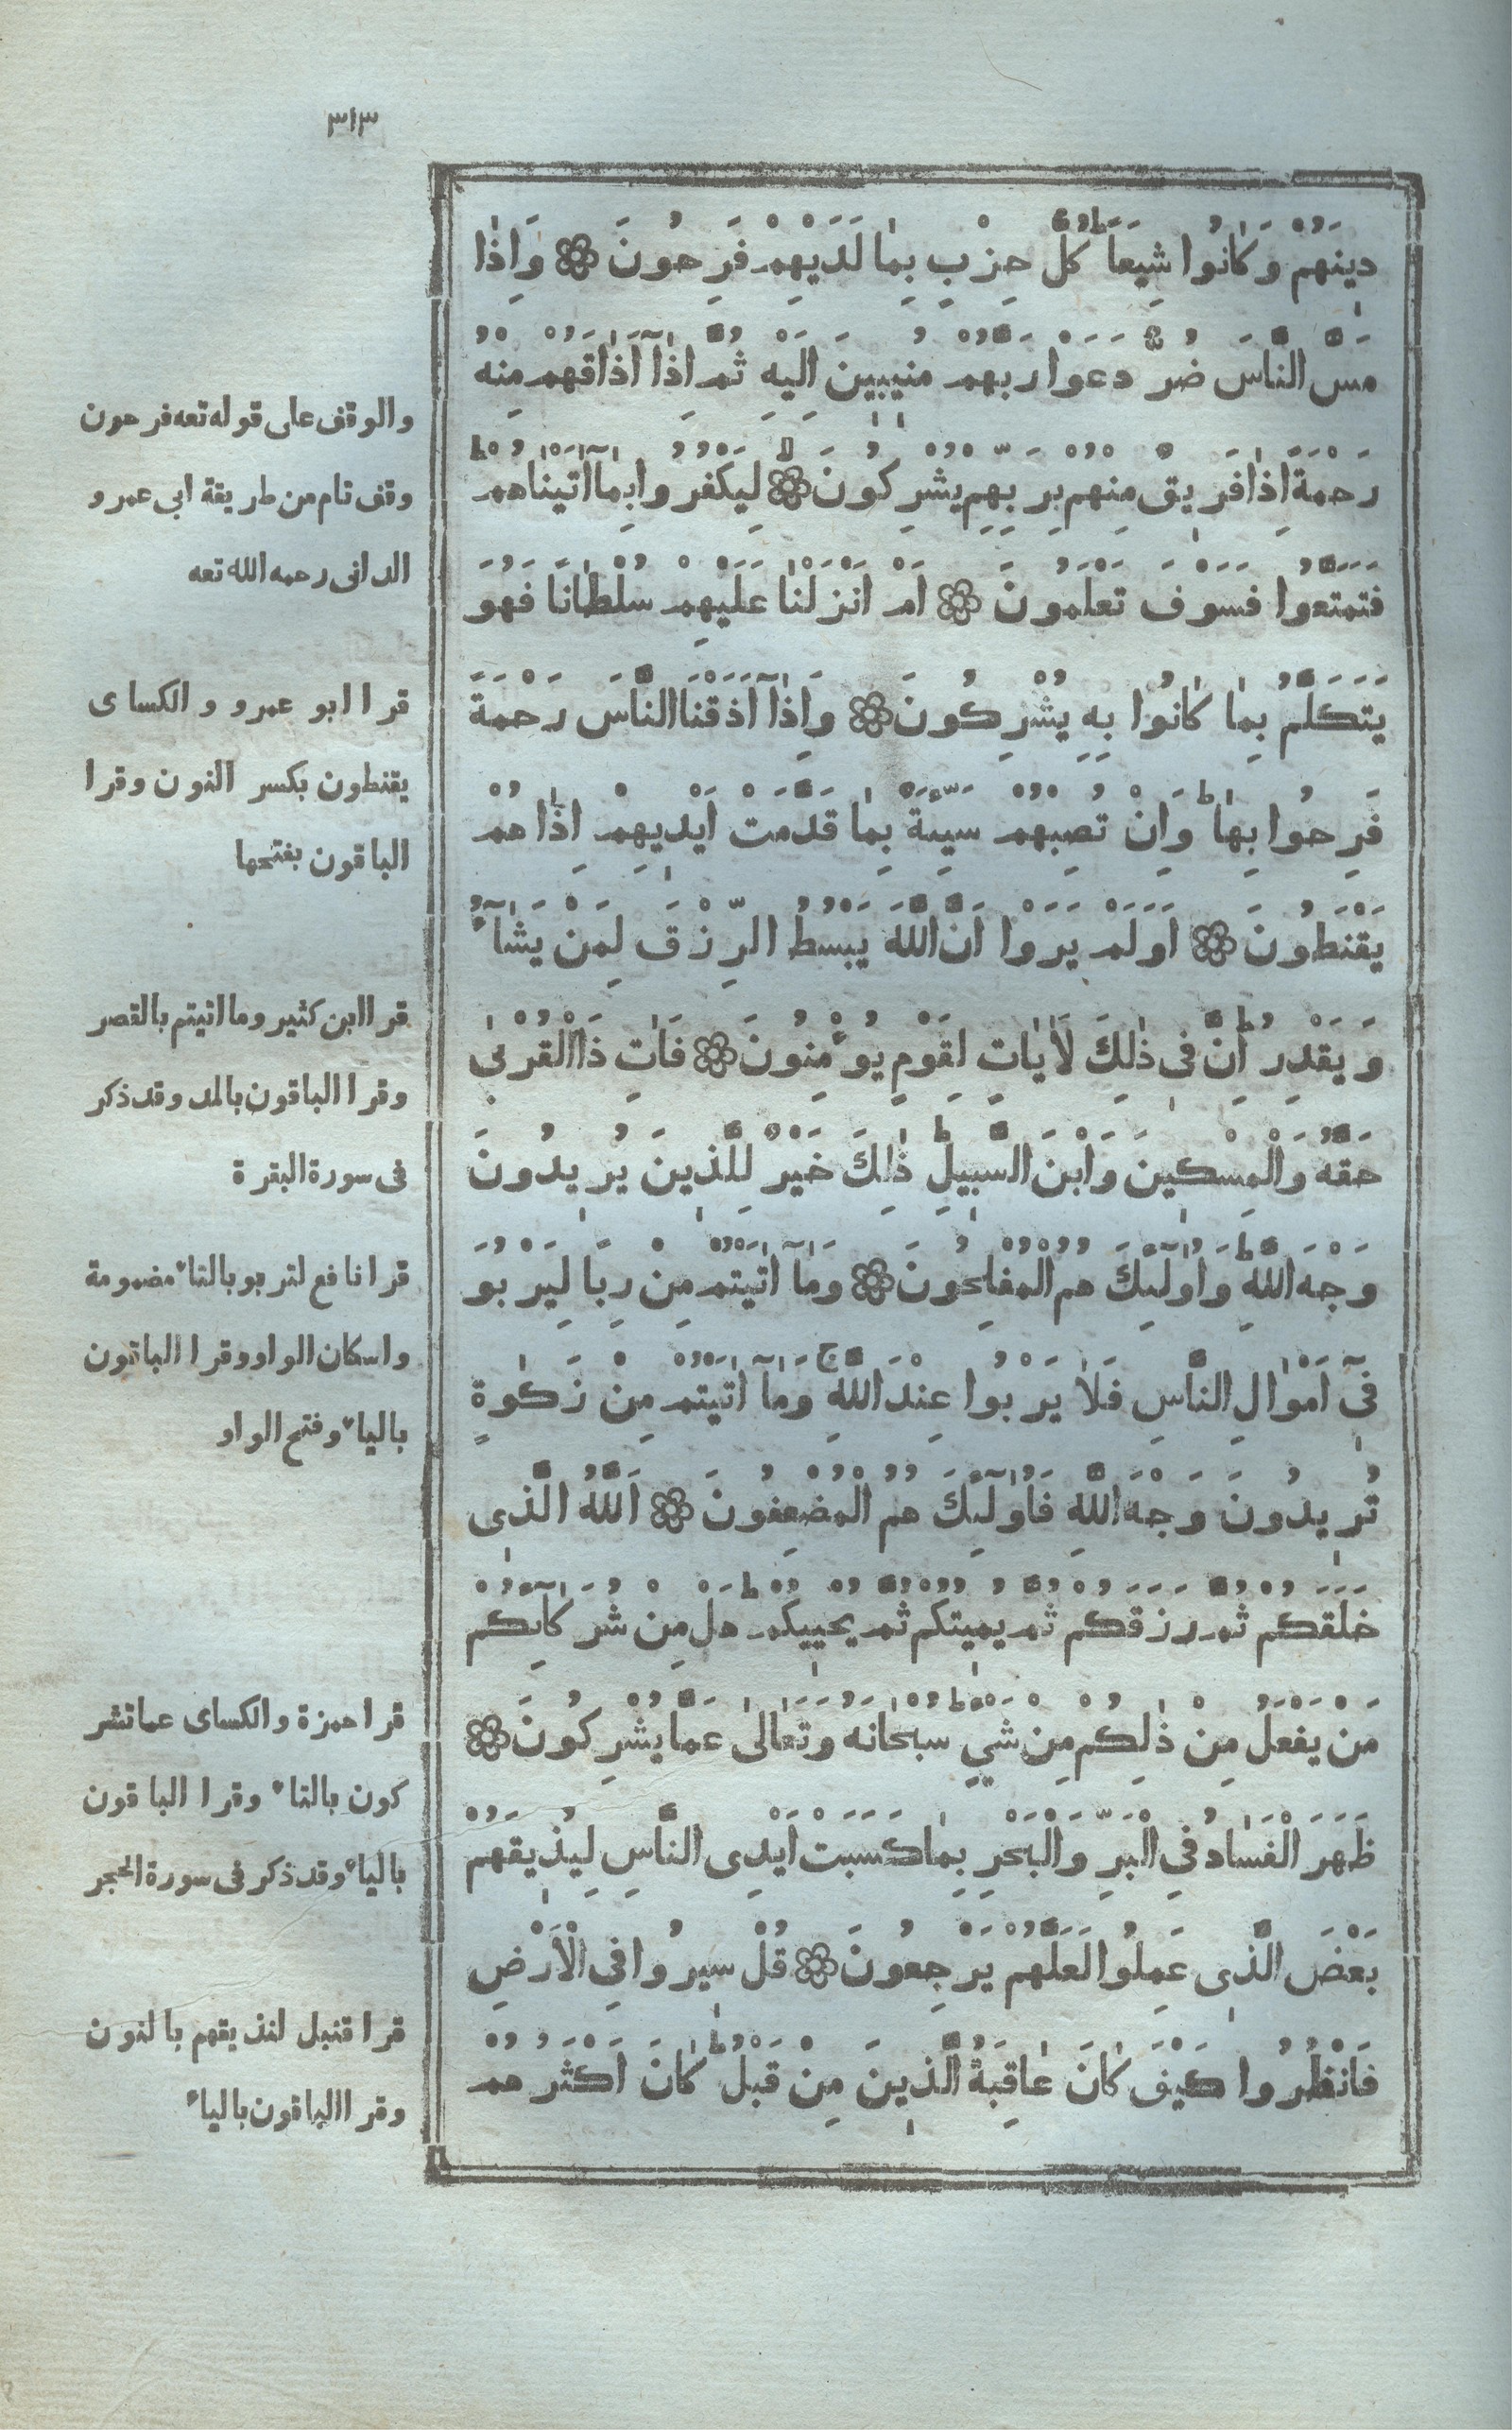 ٣١٣
دِينَهُمْ وَكَانُوا شِيَعًا ۖ كُلُّ حِزْبٍ بِمَا لَدَيْهِمْ فَرِحُونَ ۞ وَاِذَا
مَسَّ النَّاسَ ضُرٌّ دَعَوْا رَبَّهُمْ مُنِيبِينَ اِلَيْهِ ثُمَّ اِذَآ اَذَاقَهُمْ مِنْهُ
رَحْمَةً اِذَا فَرِيقٌ مِنْهُمْ بِرَبِّهِمْ يُشْرِكُونَ ۞ لِيَكْفُرُوا بِمَآ اٰتَيْنَاهُمْ ط
فَتَمَتَّعُوا فَسَوْفَ تَعْلَمُونَ ۞ اَمْ اَنْزَلْنَا عَلَيْهِمْ سُلْطَانًا فَهُوَ
يَتَكَلَّمُ بِمَا كَانُوا بِهِ يُشْرِكُونَ ۞ وَاِذَآ اَذَقْنَا النَّاسَ رَحْمَةً
فَرِحُوا بِهَا ط وَاِنْ تُصِبْهُمْ سَيِّئَةٌ بِمَا قَدَّمَتْ اَيْدِيهِمْ اِذَا هُمْ
يَقْنَطُونَ ۞ اَوَلَمْ يَرَوْا اَنَّ اللّٰهَ يَبْسُطُ الرِّزْقَ لِمَنْ يَشَآءُ
وَيَقْدِرُ ط اِنَّ فِى ذٰلِكَ لَاٰيَاتٍ لِقَوْمٍ يُؤْمِنُونَ ۞ فَاٰتِ ذَا الْقُرْبٰى
حَقَّهُ وَالْمِسْكِينَ وَابْنَ السَّبِيلِ ط ذٰلِكَ خَيْرٌ لِلَّذِينَ يُرِيدُونَ
وَجْهَ اللّٰهِ ط وَاُولٰٓئِكَ هُمُ الْمُفْلِحُونَ ۞ وَمَآ اٰتَيْتُمْ مِنْ رِبًا لِيَرْبُوَ
فِىٓ اَمْوَالِ النَّاسِ فَلَا يَرْبُوا عِنْدَ اللّٰهِ ج وَمَآ اٰتَيْتُمْ مِنْ زَكٰوةٍ
تُرِيدُونَ وَجْهَ اللّٰهِ فَاُولٰٓئِكَ هُمُ الْمُضْعِفُونَ ۞ اَللّٰهُ الَّذِى
خَلَقَكُمْ ثُمَّ رَزَقَكُمْ ثُمَّ يُمِيتُكُمْ ثُمَّ يُحْيِيكُمْ ط هَلْ مِنْ شُرَكَآئِكُمْ
مَنْ يَفْعَلُ مِنْ ذٰلِكُمْ مِنْ شَيْءٍ ط سُبْحَانَهُ وَتَعَالٰى عَمَّا يُشْرِكُونَ ۞
ظَهَرَ الْفَسَادُ فِى الْبَرِّ وَالْبَحْرِ بِمَا كَسَبَتْ اَيْدِى النَّاسِ لِيُذِيقَهُمْ
بَعْضَ الَّذِى عَمِلُوا لَعَلَّهُمْ يَرْجِعُونَ ۞ قُلْ سِيرُوا فِى الْاَرْضِ
فَانْظُرُوا كَيْفَ كَانَ عَاقِبَةُ الَّذِينَ مِنْ قَبْلُ ط كَانَ اَكْثَرُهُمْ
والوقف على قوله تعه فرحون
وقف تام من طريقة ابى عمرو
الدانى رحمه الله تعه
قرا ابو عمرو والكساى
يقنطون بكسر النون وقرا
الباقون بفتحها
قرا ابن كثير وما اتيتم بالقصر
وقرا الباقون بالمد وقد ذكر
فى سورة البقرة
قرا نافع لتربو بالتاء مضمومة
واسكان الواو وقرا الباقون
بالياء وفتح الواو
قرا حمزة والكساى عما تشر
كون بالتاء وقرا الباقون
بالياء وقد ذكر فى سورة الحجر
قرا قنبل لنذيقهم بالنون
وقرا الباقون بالياء